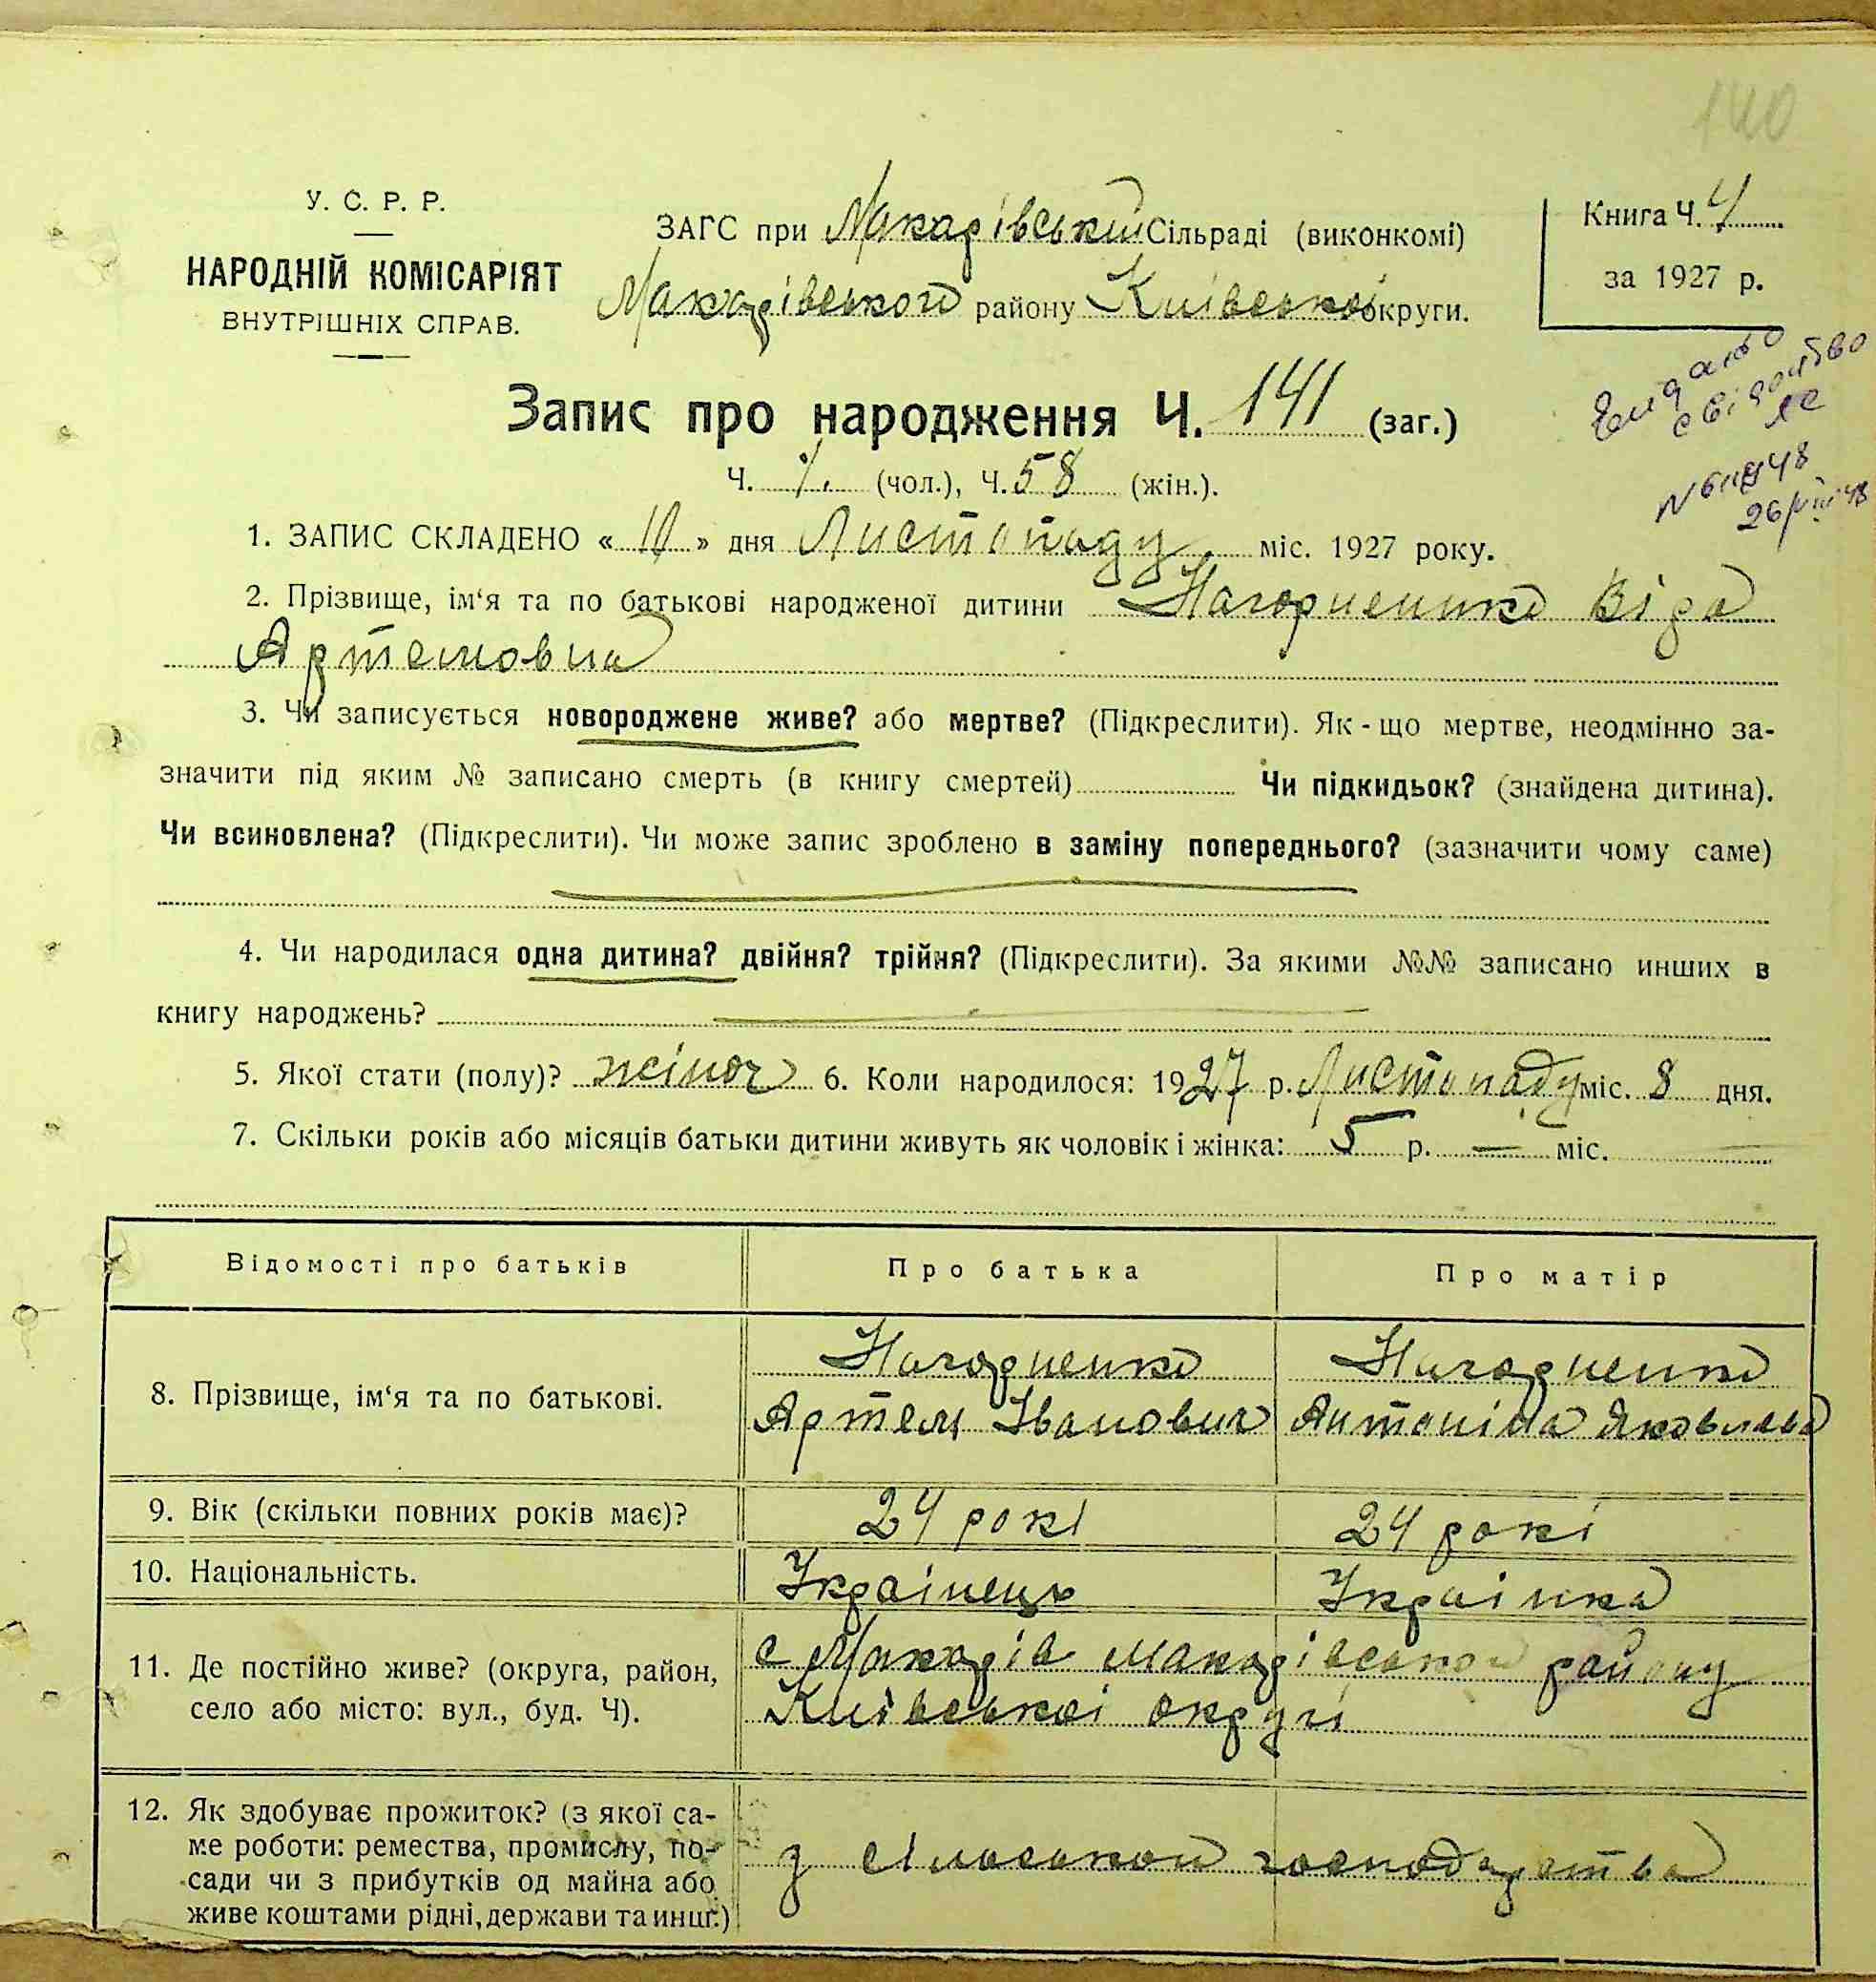 140
У. С. Р. Р.
НАРОДНІЙ КОМІСАРІЯТ
ВНУТРІШНІХ СПРАВ.
ЗАГС при Макарівській Сільраді (виконкомі)
Макарівського району Київської округи.
Книга Ч. 4
за 1927 р.
Видано
свідоцтво
Запис про народження Ч. 141 (заг.)
Ч. ⁒ (чол.), Ч. 58 (жін.).
1. ЗАПИС СКЛАДЕНО « 10 » дня Листопаду міс. 1927 року.
2. Прізвище, ім‘я та по батькові народженої дитини Нагорненко Віра
Артемовна
3. Чи записується новороджене живе? або мертве? (Підкреслити). Як - що мертве, неодмінно за-
значити під яким № записано смерть (в книгу смертей) Чи підкидьок? (знайдена дитина).
Чи всиновлена? (Підкреслити). Чи може запис зроблено в заміну попереднього? (зазначити чому саме)
4. Чи народилася одна дитина? двійня? трійня? (Підкреслити). За якими №№ записано инших в
книгу народжень?
5. Якої стати (полу)? жіноч 6. Коли народилося: 1927 р. Листопаду міс. 8 дня.
7. Скільки років або місяців батьки дитини живуть як чоловік і жінка: 5 р. — міс.
Відомості про батьків Про батька Про матір
Нагорненко Нагорненко
8. Прізвище, ім‘я та по батькові. Артем Іванович Антоніна Яковлева
9. Вік (скільки повних років має)? 24 рокі 24 рокі
10. Національність. Українець Українка
11. Де постійно живе? (округа, район, с Макарів Макарівського району
село або місто: вул., буд. Ч). Київської округи
12. Як здобуває прожиток? (з якої са-
ме роботи: ремества, промислу, по- з сільського господарства
сади чи з прибутків од майна або
живе коштами рідні, держави та инш.)